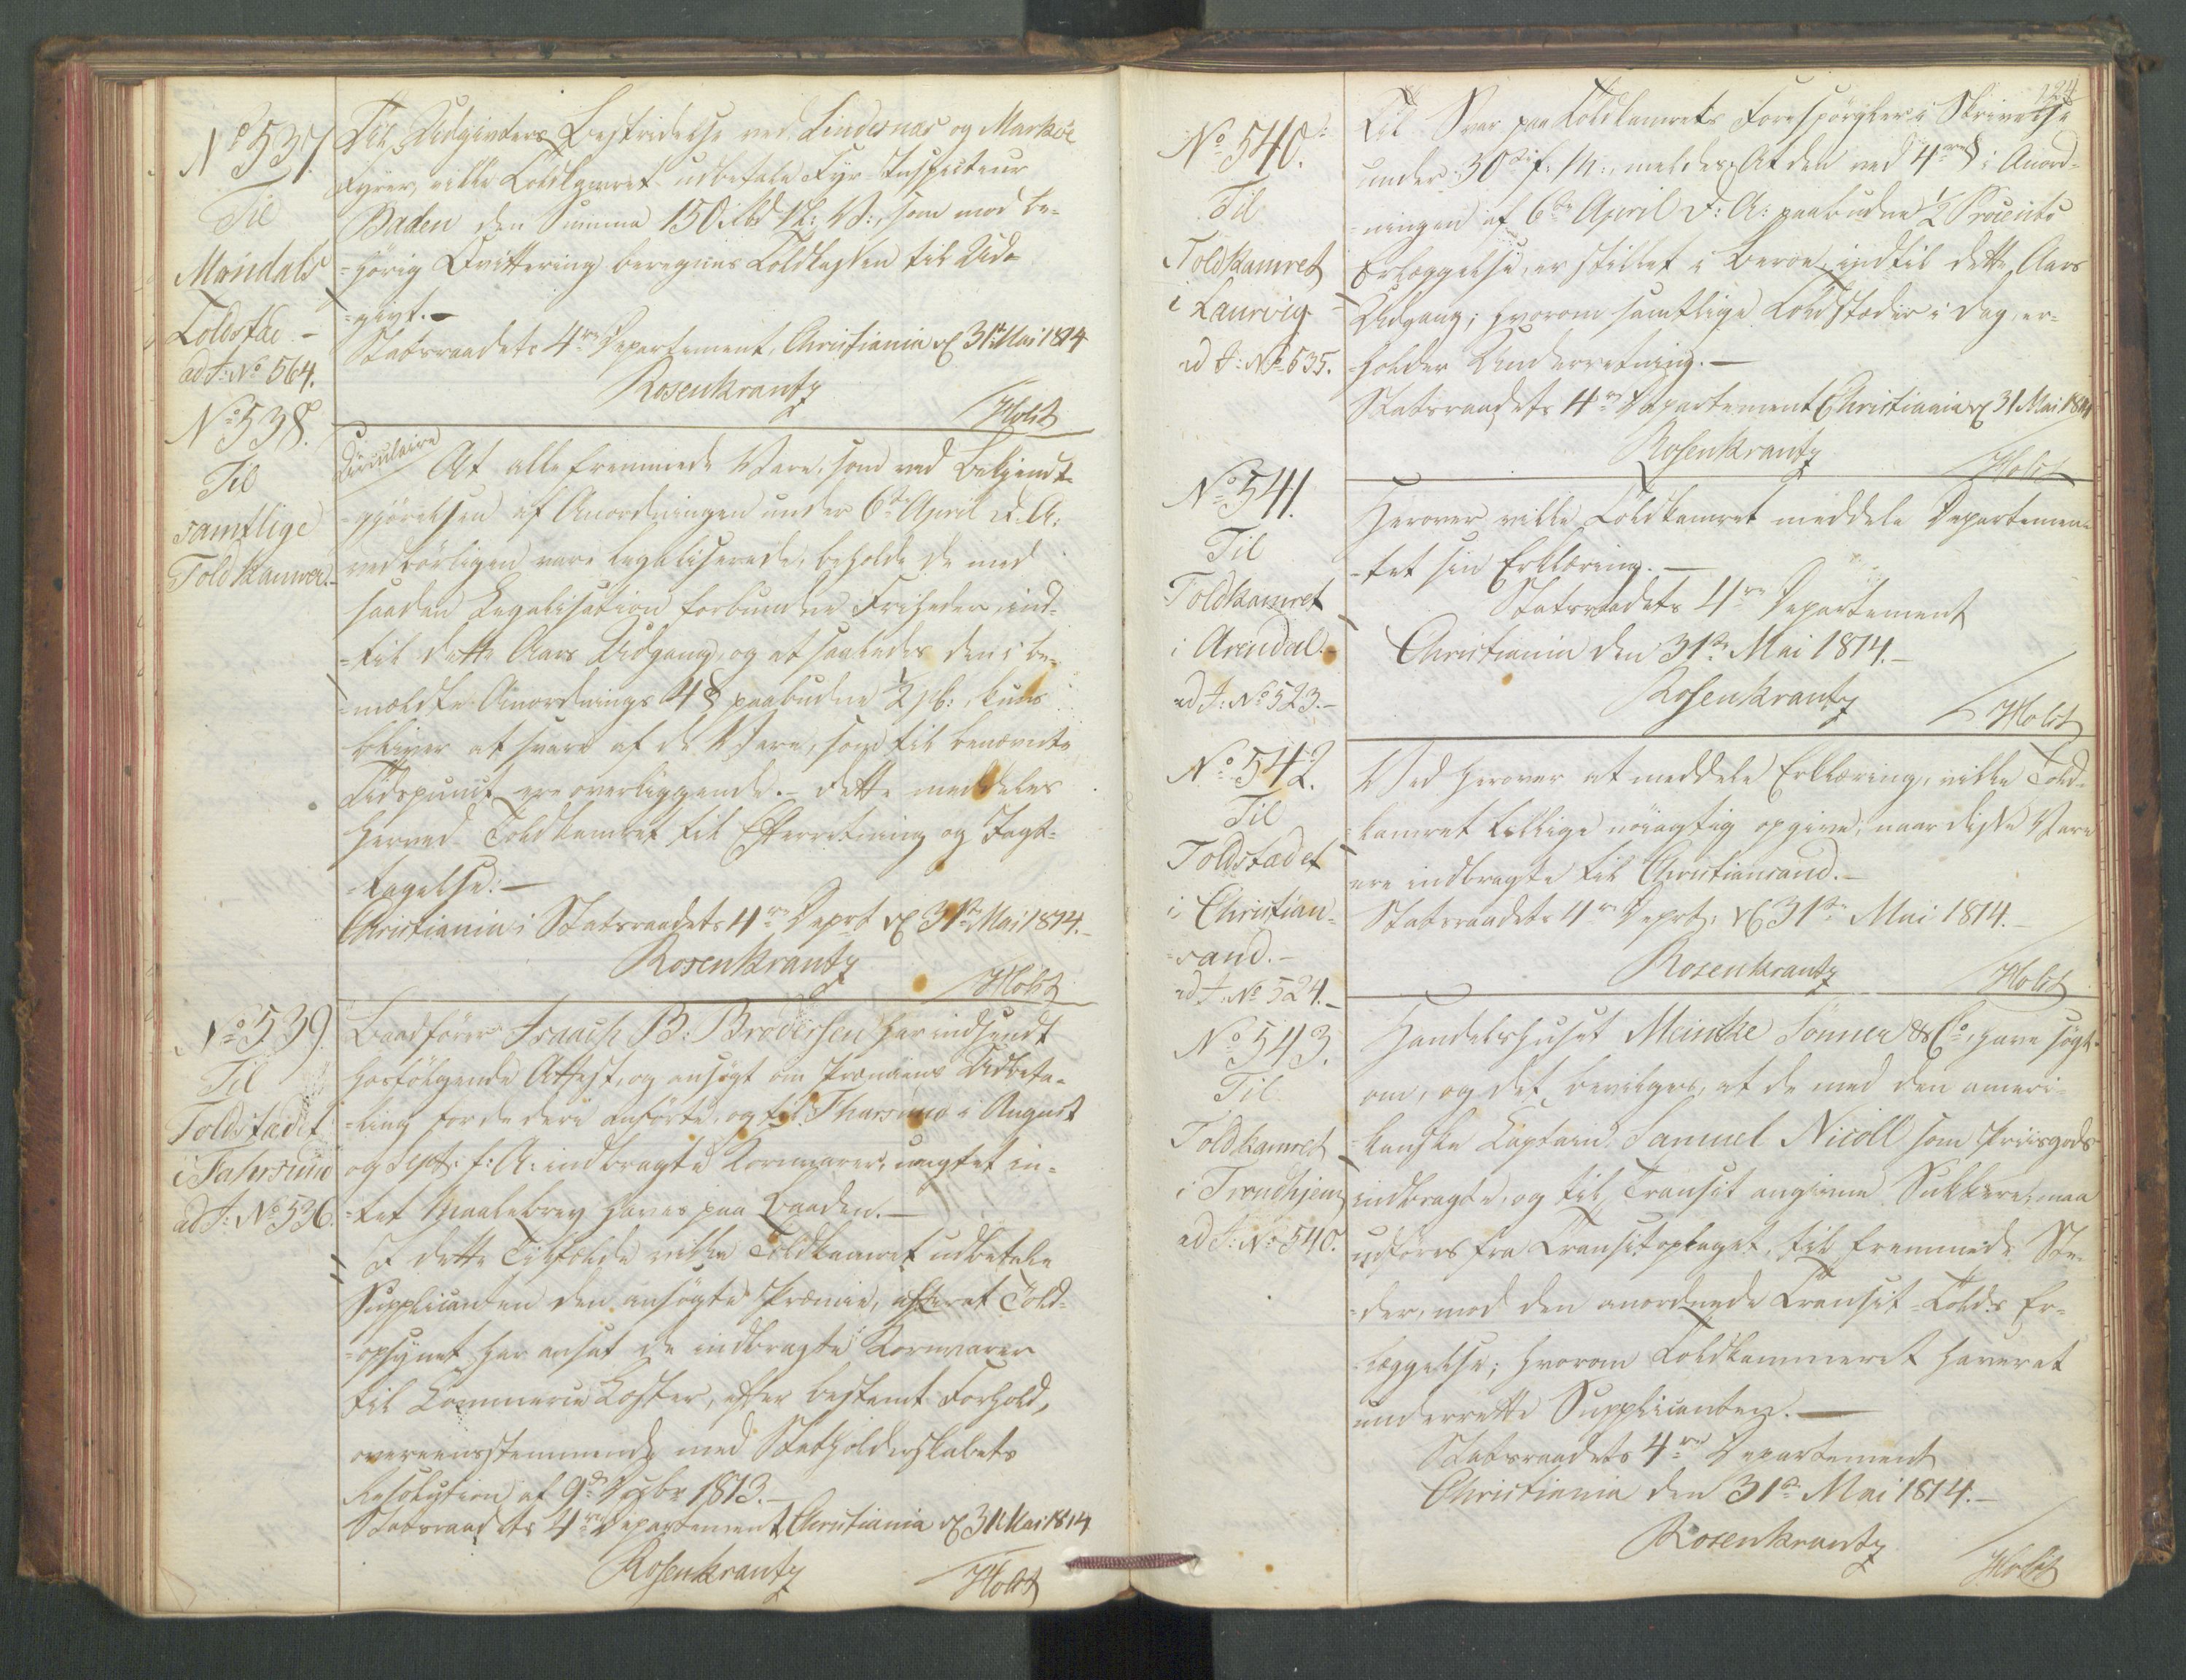 No 537.
Til
Mandals
Toldsted -
ad J: No 564.
Til Udgivters Bestridelse ved Lindesnæs og Markøe
Fyrer, ville Toldkamret udbetale Fyr-Inspecteur
Baden den Summa 150 rbd N: V:, som mod be-
-hörig Qvittering beregnes Toldkassen til Ud-
-givt. -
Statsraadets 4de Departement, Christiania d 31 Mai 1814
Rosenkrantz
/Holst
No 538.
Til
samtlige
Toldkamre.
Circulaire
At alle fremmede Vare, som ved Bekjendt-
-gjörelsen af Anordningen under 6te April d: A:
vedbörligen vare legaliserede, beholde de med
saadan Legalisation forbundne Friheder, ind-
-til dette Aars Udgang, og at saaledes den i be-
-meldte Anordnings 4 § paabudne ½ pC:, kuns
bliver at svare af de Vare, som til benævnte
Tidspunct ere overliggende. - Dette meddeles
herved Toldkamret til Efterretning og Iagt-
-tagelse. -
Christiania i Statsraadets 4de Dept d 31te Mai 1814.
Rosenkrantz
/Holst
No 539.
Til
Toldstedet
i Fahrsund
ad J: No 536.
Baadförer Isaach B: Brodersen har indsendt
hosfölgende Attest, og ansögt om Præmiens Udbeta-
-ling for de deri anförte, og til Fharsund i August
og Sept: f: A: indbragte Kornvarer, uagtet in-
-tet Maalebrev haves paa Baaden. -
I dette Tilfælde ville Toldkamret udbetale
Supplicanten den ansögte Præmie, efterat Told-
-opsynet har ansat de indbragte Kornvarer
til Commerce Læster, efter bestemt Forhold,
overeensstemmende med Statholderskabets
Resolution af 9de Decbr 1813. -
Statsraadets 4de Departement Christiania d 31 Mai 1814
Rosenkrantz
/Holst
124
No 540.
Til
Toldkamret
i Laurvig
ad J: No 535.
Til Svar paa Toldkamrets Forespörgsler i Skrivelse
under 30te f: M:, meldes: At den ved 4de § i Anord-
-ningen af 6te April d: A: paabudne ½ Procents
Erlæggelse, er stillet i Beroe, indtil dette Aars
Udgang; hvorom samtlige Toldsteder i Dag er-
-holder Underretning. -
Statsraadets 4de Departement Christiania d 31 Mai 1814
Rosenkrantz
/Holst
No 541.
Til
Toldkamret
i Arendal. -
ad J: No 523. -
Herover ville Toldkamret meddele Departemen-
-tet sin Erklæring. -
Statsraadets 4de Departement
Christiania den 31te Mai 1814. -
Rosenkrantz
/Holst
No 542.
Til
Toldstædet
i Christian-
-sand. -
ad J: No 524. -
Ved herover at meddele Erklæring, ville Told-
-kamret tillige nöiagtig opgive, naar disse Vare
ere indbragte til Christiansand. -
Statsraadets 4de Dept: d 31te Mai 1814. -
Rosenkrantz
/Holst
No 543.
Til
Toldkamret
i Trondhjem
ad J: No 540.
Handelshuset Meincke Sönner & Co, have sögt
om, og det bevilges, at de med den ameri-
-kanske Captain Samuel Nicoll som Priisgods
indbragte, og til Transit angivne Sukkere, maa
udföres fra Transitoplaget, til fremmede Ste-
-der, mod den anordnede Transit-Tolds Er-
-læggelse; hvorom Toldkammeret haver at
underrette Supplicanten. -
Statsraadets 4de Departement
Christiania den 31te Mai 1814. -
Rosenkrantz
/Holst